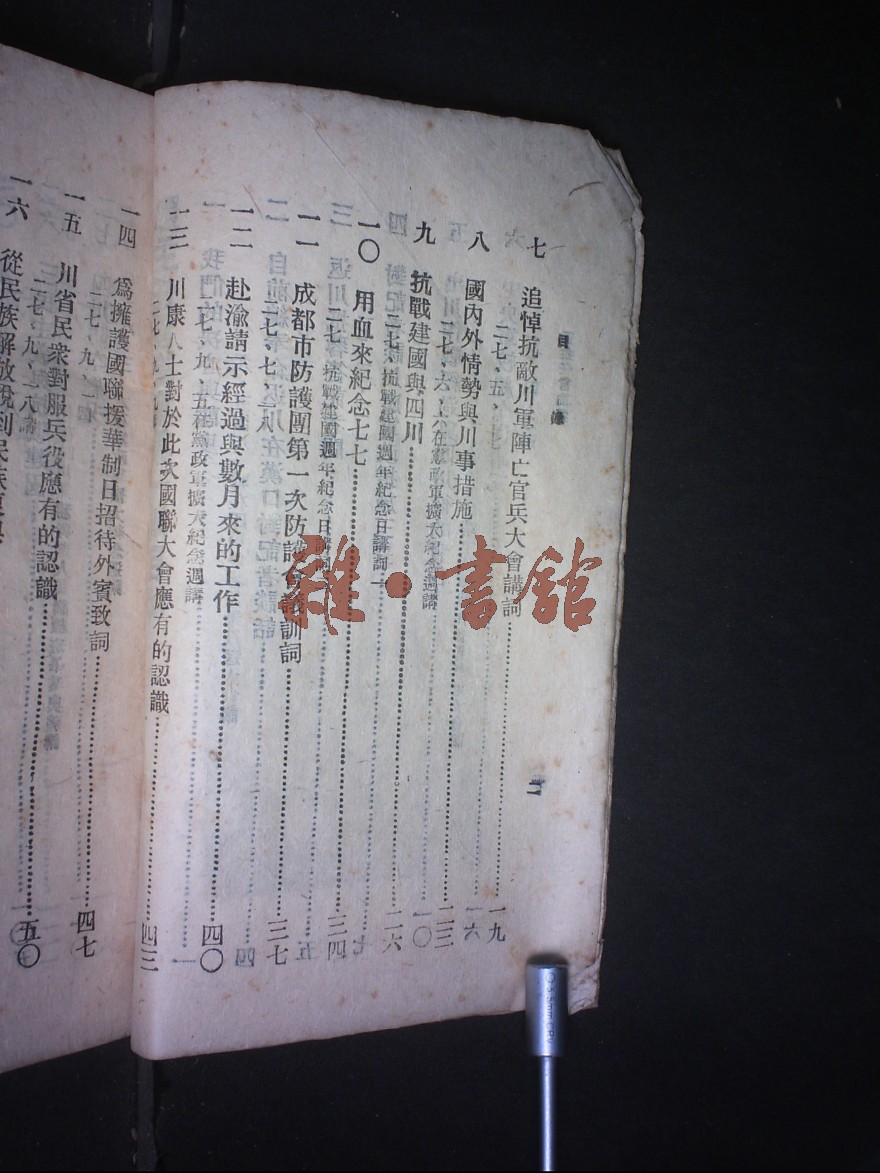 目錄
七 追悼抗敵川軍陣亡官兵大會講詞……一九
二七、五、
八 國內外情勢與川事措施……二三
二七、六、六在黨政軍擴大紀念週講
九 抗戰建國與四川……二六
二七、抗戰建國週年紀念日講詞一
一〇 用血來紀念七七……三四
二七、抗戰建國週年紀念日講詞
一一 成都市防護團第一次防護會議訓詞……三七
二七、七、
一二 赴渝請示經過與數月來的工作……四〇
二七、九、五在黨政軍擴大紀念週講
一三 川康人士對於此次國聯大會應有的認識……四三
二七、九、
一四 爲擁護國聯援華制日招待外賓致詞……四七
二七、九、
一五 川省民衆對服兵役應有的認識……五〇
二七、九、二八講
一六 從民族解放說到民族復興
二
雜·書館
3.5mm CRV